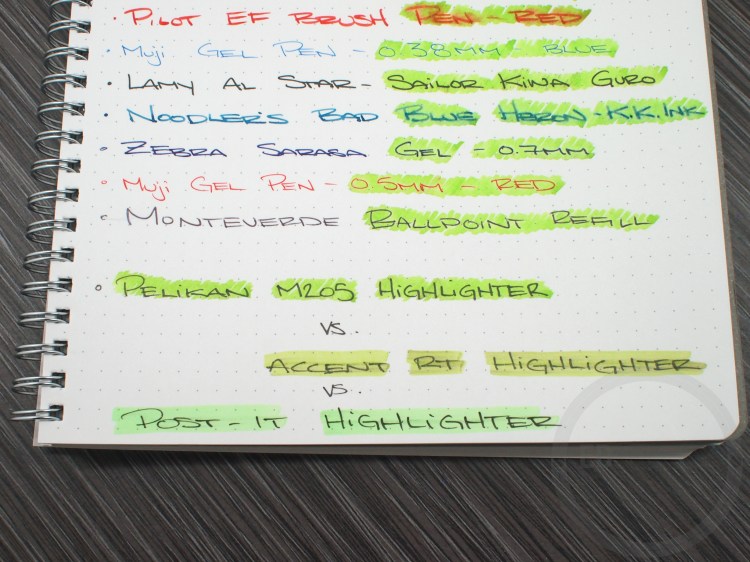 • PILOT EF BRUSH PEN - RED
• MUJI GEL PEN - 0.38MM BLUE
• LAMY AL STAR - SAILOR KIWA GURO
• NOODLER'S BAD BLUE HERON - K.K. INK
• ZEBRA SARASA GEL - 0.7MM
• MUJI GEL PEN - 0.5MM - RED
• MONTEVERDE BALLPOINT REFILL
◦ PELIKAN M205 HIGHLIGHTER
VS.
ACCENT RT HIGHLIGHTER
VS.
POST-IT HIGHLIGHTER